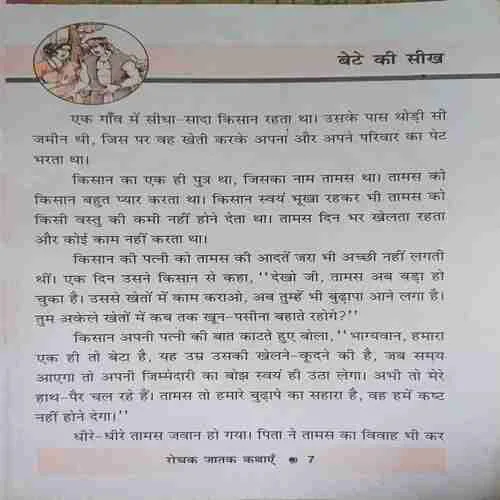 बेटे की सीख
एक गाँव में सीधा-सादा किसान रहता था। उसके पास थोड़ी सी
जमीन थी, जिस पर वह खेती करके अपना और अपने परिवार का पेट
भरता था।
किसान का एक ही पुत्र था, जिसका नाम तामस था। तामस को
किसान बहुत प्यार करता था। किसान स्वयं भूखा रहकर भी तामस को
किसी वस्तु की कमी नहीं होने देता था। तामस दिन भर खेलता रहता
और कोई काम नहीं करता था।
किसान की पत्नी को तामस की आदतें जरा भी अच्छी नहीं लगती
थीं। एक दिन उसने किसान से कहा, ''देखो जी, तामस अब बड़ा हो
चुका है। उससे खेतों में काम कराओ, अब तुम्हें भी बुढ़ापा आने लगा है।
तुम अकेले खेतों में कब तक खून-पसीना बहाते रहोगे?''
किसान अपनी पत्नी की बात काटते हुए बोला, ''भाग्यवान, हमारा
एक ही तो बेटा है, यह उम्र उसकी खेलने-कूदने की है, जब समय
आएगा तो अपनी जिम्मेदारी का बोझ स्वयं ही उठा लेगा। अभी तो मेरे
हाथ-पैर चल रहे हैं। तामस तो हमारे बुढ़ापे का सहारा है, वह हमें कष्ट
नहीं होने देगा।''
धीरे-धीरे तामस जवान हो गया। पिता ने तामस का विवाह भी कर
रोचक जातक कथाएँ ● 7